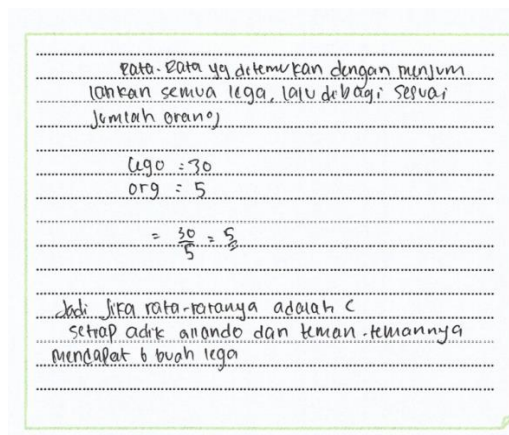 Rata-Rata yg ditemukan dengan menjum
lahkan semua lego, lalu dibagi sesuai
Jumlah orang
Lego = 30
org = 5
= 30/5 = 5
Jadi Jika rata-ratanya adalah 6
setiap adik anando dan teman-temannya
mendapat 6 buah lego